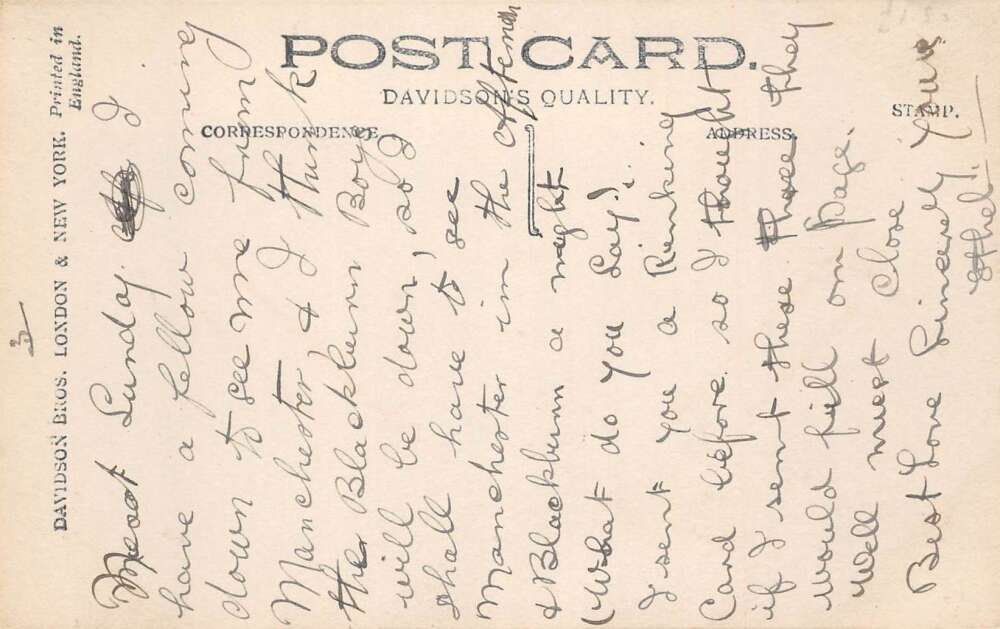 POST CARD.
DAVIDSON'S QUALITY.
CORRESPONDENCE
ADDRESS.
STAMP.
DAVIDSON BROS. LONDON & NEW YORK. Printed in England.
3
Next Sunday I
have a fellow coming
down to see me from
Manchester & I think
the Blackburn Boys
will be down, so I
shall have to see
Manchester in the afternon
& Blackburn a night
(What do you Say!..
I sent you a Rinking
Card before so I thought
if I sent these three they
would fill on page.
Well must Close
Best Love Sincerely Yours
Ethel.